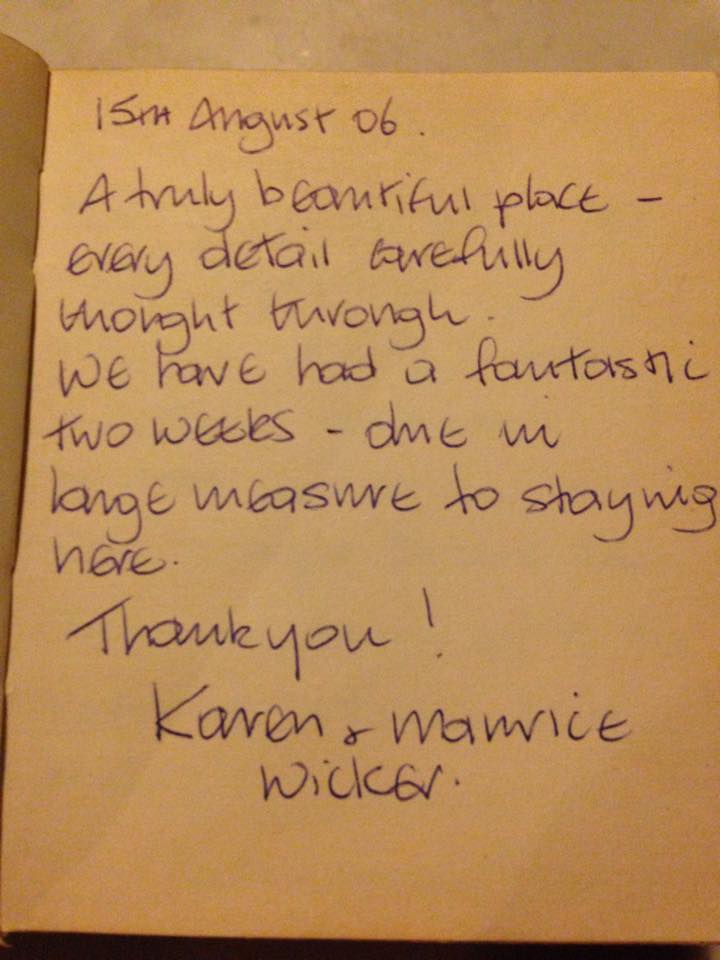 15TH August 06.
A truly beautiful place -
every detail carefully
thought through.
We have had a fantastic
two weeks - due in
large measure to staying
here.
Thankyou!
Karen & Maurice
Wicker.